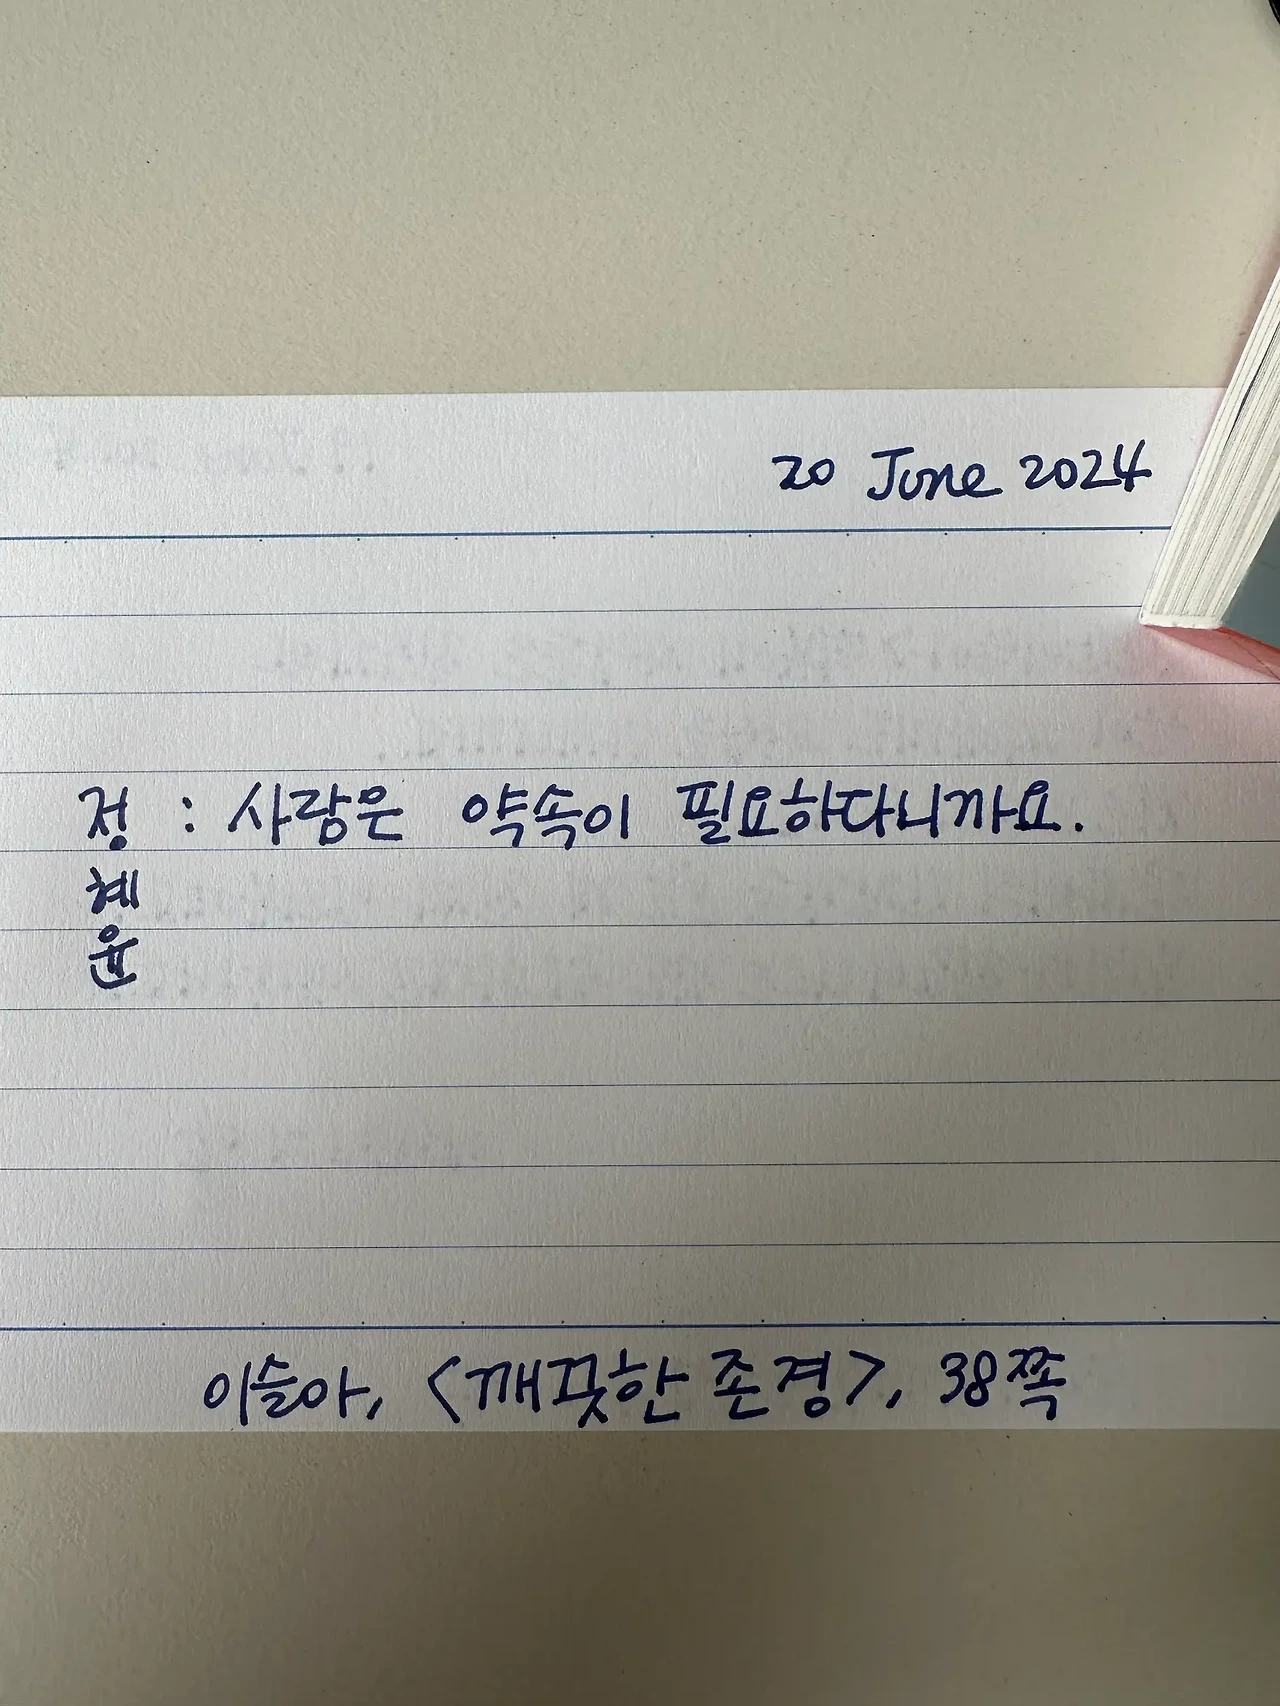 20 June 2024
정 : 사람은 약속이 필요하다니까요.
혜
윤
이슬아, <깨끗한 존경>, 38쪽